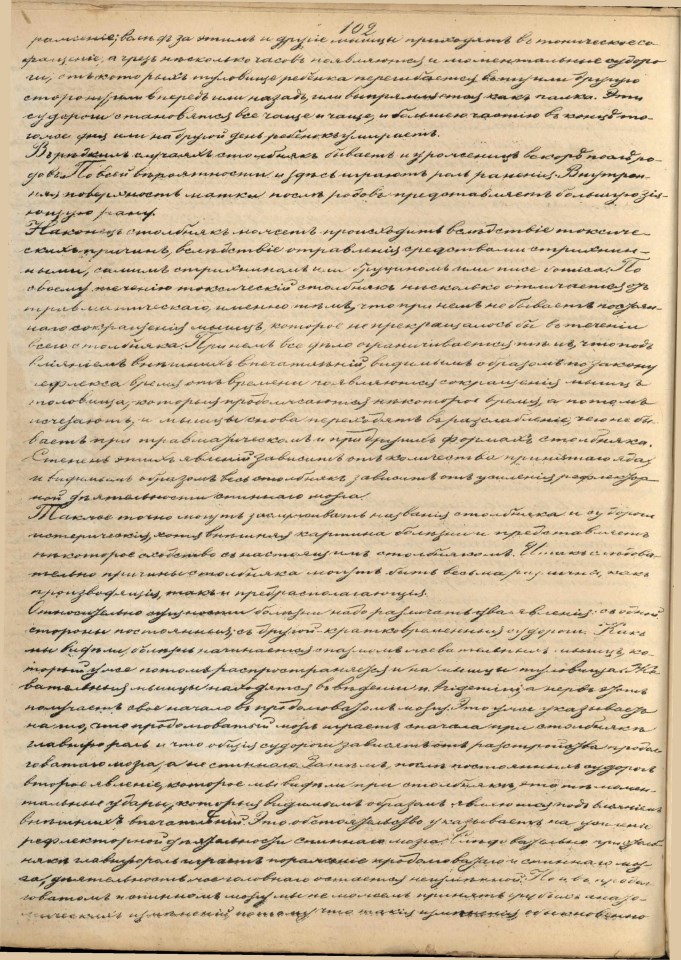 102
вслѣдъ за этимъ и другіе мышцы приходятъ въ тоническое со
кращеніе, а чрезъ нѣсколько часовъ появляются и моментальные судоро
ги, отъ которыхъ туловище ребенка перегибается въ ту или другую
сторону, или впередъ или назадъ, или выпрямляется какъ палка. Эти
судороги становятся все чаще и чаще, и большею частію въ концѣ то
го же дня или на другой день ребенокъ умираетъ.
Въ рѣдкихъ случаяхъ столбнякъ бываетъ и у роженицъ вскорѣ послѣ ро
довъ. По всей вѣроятности и здѣсь играютъ роль раненія. Внутрен
няя поверхность матки послѣ родовъ представляетъ большую зія
ющую рану.
Наконецъ столбнякъ можетъ происходить вслѣдствіе токсиче
скихъ причинъ, вслѣдствіе отравленія средствами стрихнин
ными, самимъ стрихниномъ или бруциномъ или По
своему теченію токсическій столбнякъ нѣсколько отличается отъ
травматическаго, именно тѣмъ, что при немъ не бываетъ постоян
наго сокращенія мышцъ, которое не прекращалось бы въ теченіи
всего столбняка. При немъ все дѣло ограничивается тѣмъ, что подъ
вліяніемъ внѣшнихъ впечатлѣній, видимымъ образомъ по закону
рефлекса время отъ времени появляются сокращенія мышцъ
туловища, которыя продолжаются нѣкоторое время, а потомъ
исчезаютъ, и мышцы снова переходятъ въ разслабленіе, чего не бы
ваетъ при травматическомъ и при другихъ формахъ столбняка.
Степень этихъ явленій зависитъ отъ количества принятаго яда
и видимымъ образомъ весь столбнякъ зависитъ отъ усиленія рефлектор
ной дѣятельности спиннаго мозга.
Также точно могутъ заслуживать названія столбняка и судороги
истерическія, хотя внѣшняя картина болѣзни и представляетъ
нѣкоторое сходство съ настоящимъ столбнякомъ. Итакъ слѣдова
тельно причины столбняка могутъ быть весьма различны, какъ
производящія, такъ и предрасполагающія.
Относительно сущности болѣзни надо различать два явленія: съ одной
стороны постоянныя, съ другой – кратковременныя судороги. Какъ
мы видѣли, болѣзнь начинается спазмомъ жевательныхъ мышцъ, ко
торый уже потомъ распространяется и на мышцы туловища. Же
вательныя мышцы находятся въ вѣденіи n. trigemini, а нервъ этотъ
получаетъ свое начало въ продолговатомъ мозгу. Это уже указываетъ
на то, что продолговатый мозгъ играетъ сначала при столбнякѣ
главную роль и что общія судороги зависятъ отъ разстройства продол
говатаго мозга, а не спиннаго. Затѣмъ, послѣ постоянныхъ судорогъ
второе явленіе, которое мы видимъ при столбнякѣ, это тѣ момен
тальные удары, которые видимымъ образомъ являются подъ вліяніемъ
внѣшнихъ впечатлѣній. Это обстоятельство указываетъ на усиленіе
рефлекторной дѣятельности спиннаго мозга. Слѣдовательно при столб
някѣ главную роль играетъ пораженіе продолговатаго и спиннаго моз
га, дѣятельность же головнаго остается неизмѣнной. Но и въ продол
говатомъ и спинномъ мозгу мы не можемъ принять грубыхъ анато
мическихъ измѣненій потому, что такія измѣненія обыкновенно